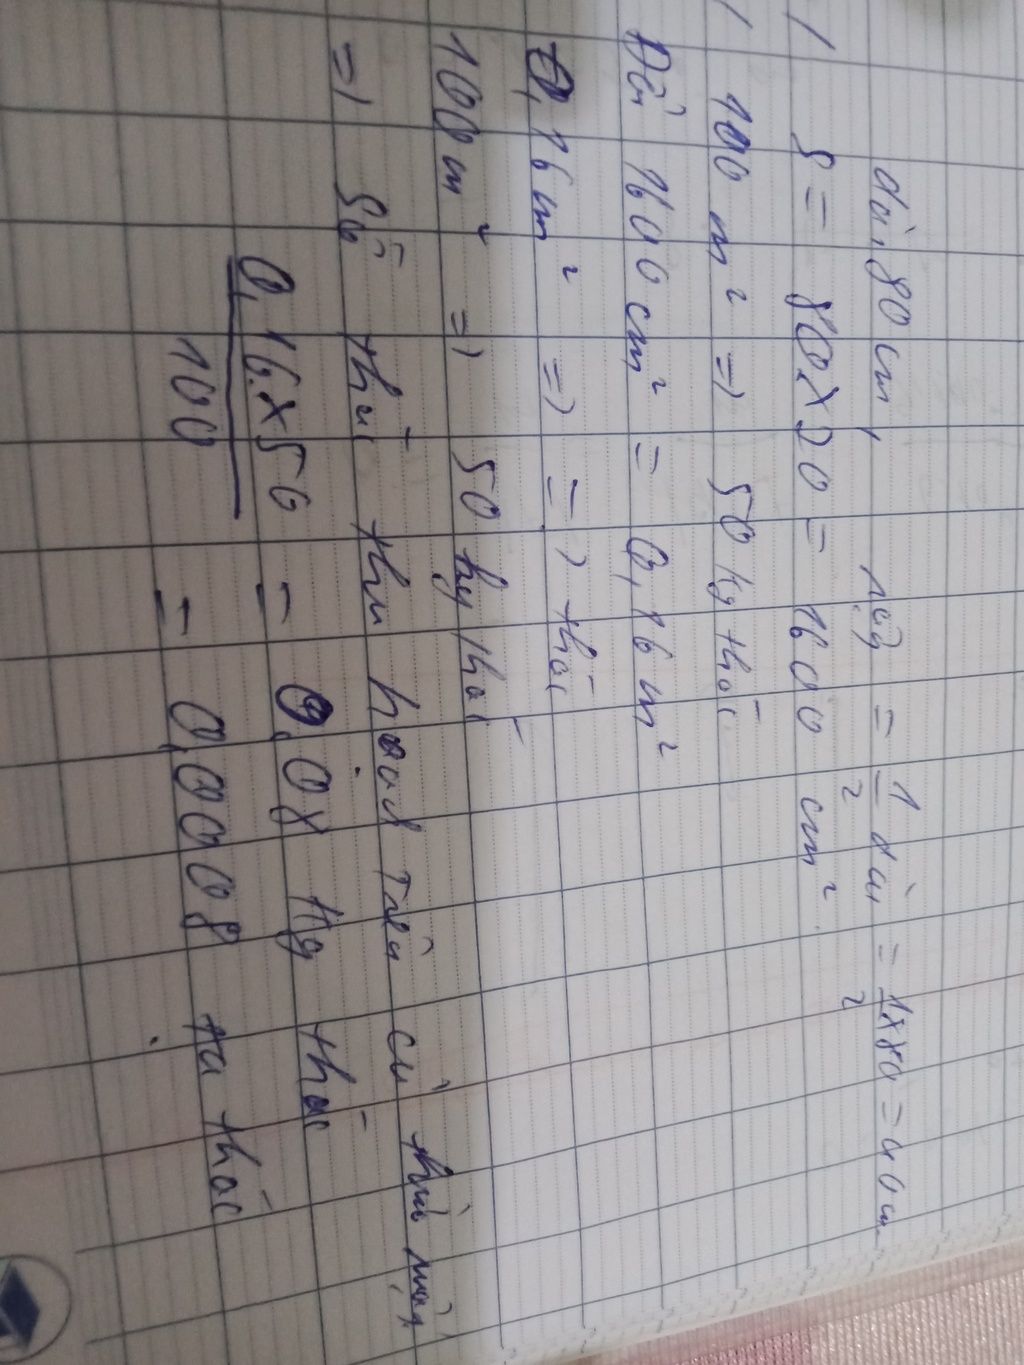 dài 80 cm, rộng = 1/2 dài = 1x80/2 = 40 cm
S = 80 x 20 = 1600 cm²
100 m² => 50 kg thóc
Đổi 1600 cm² = 0,16 m²
0,16 m² => => thóc
100 m² => 50 kg thóc
=> Số thóc thu hoạch trên cả thửa ruộng
0,16 x 50 / 100 = 0,08 kg thóc
= 0,0008 tạ thóc